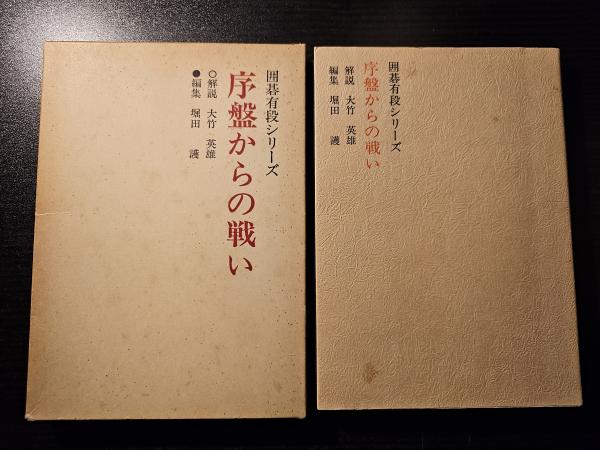 囲碁有段シリーズ
序盤からの戦い
○解説 大竹 英雄
●編集 堀田 護
囲碁有段シリーズ
序盤からの戦い
解説 大竹 英雄
編集 堀田 護